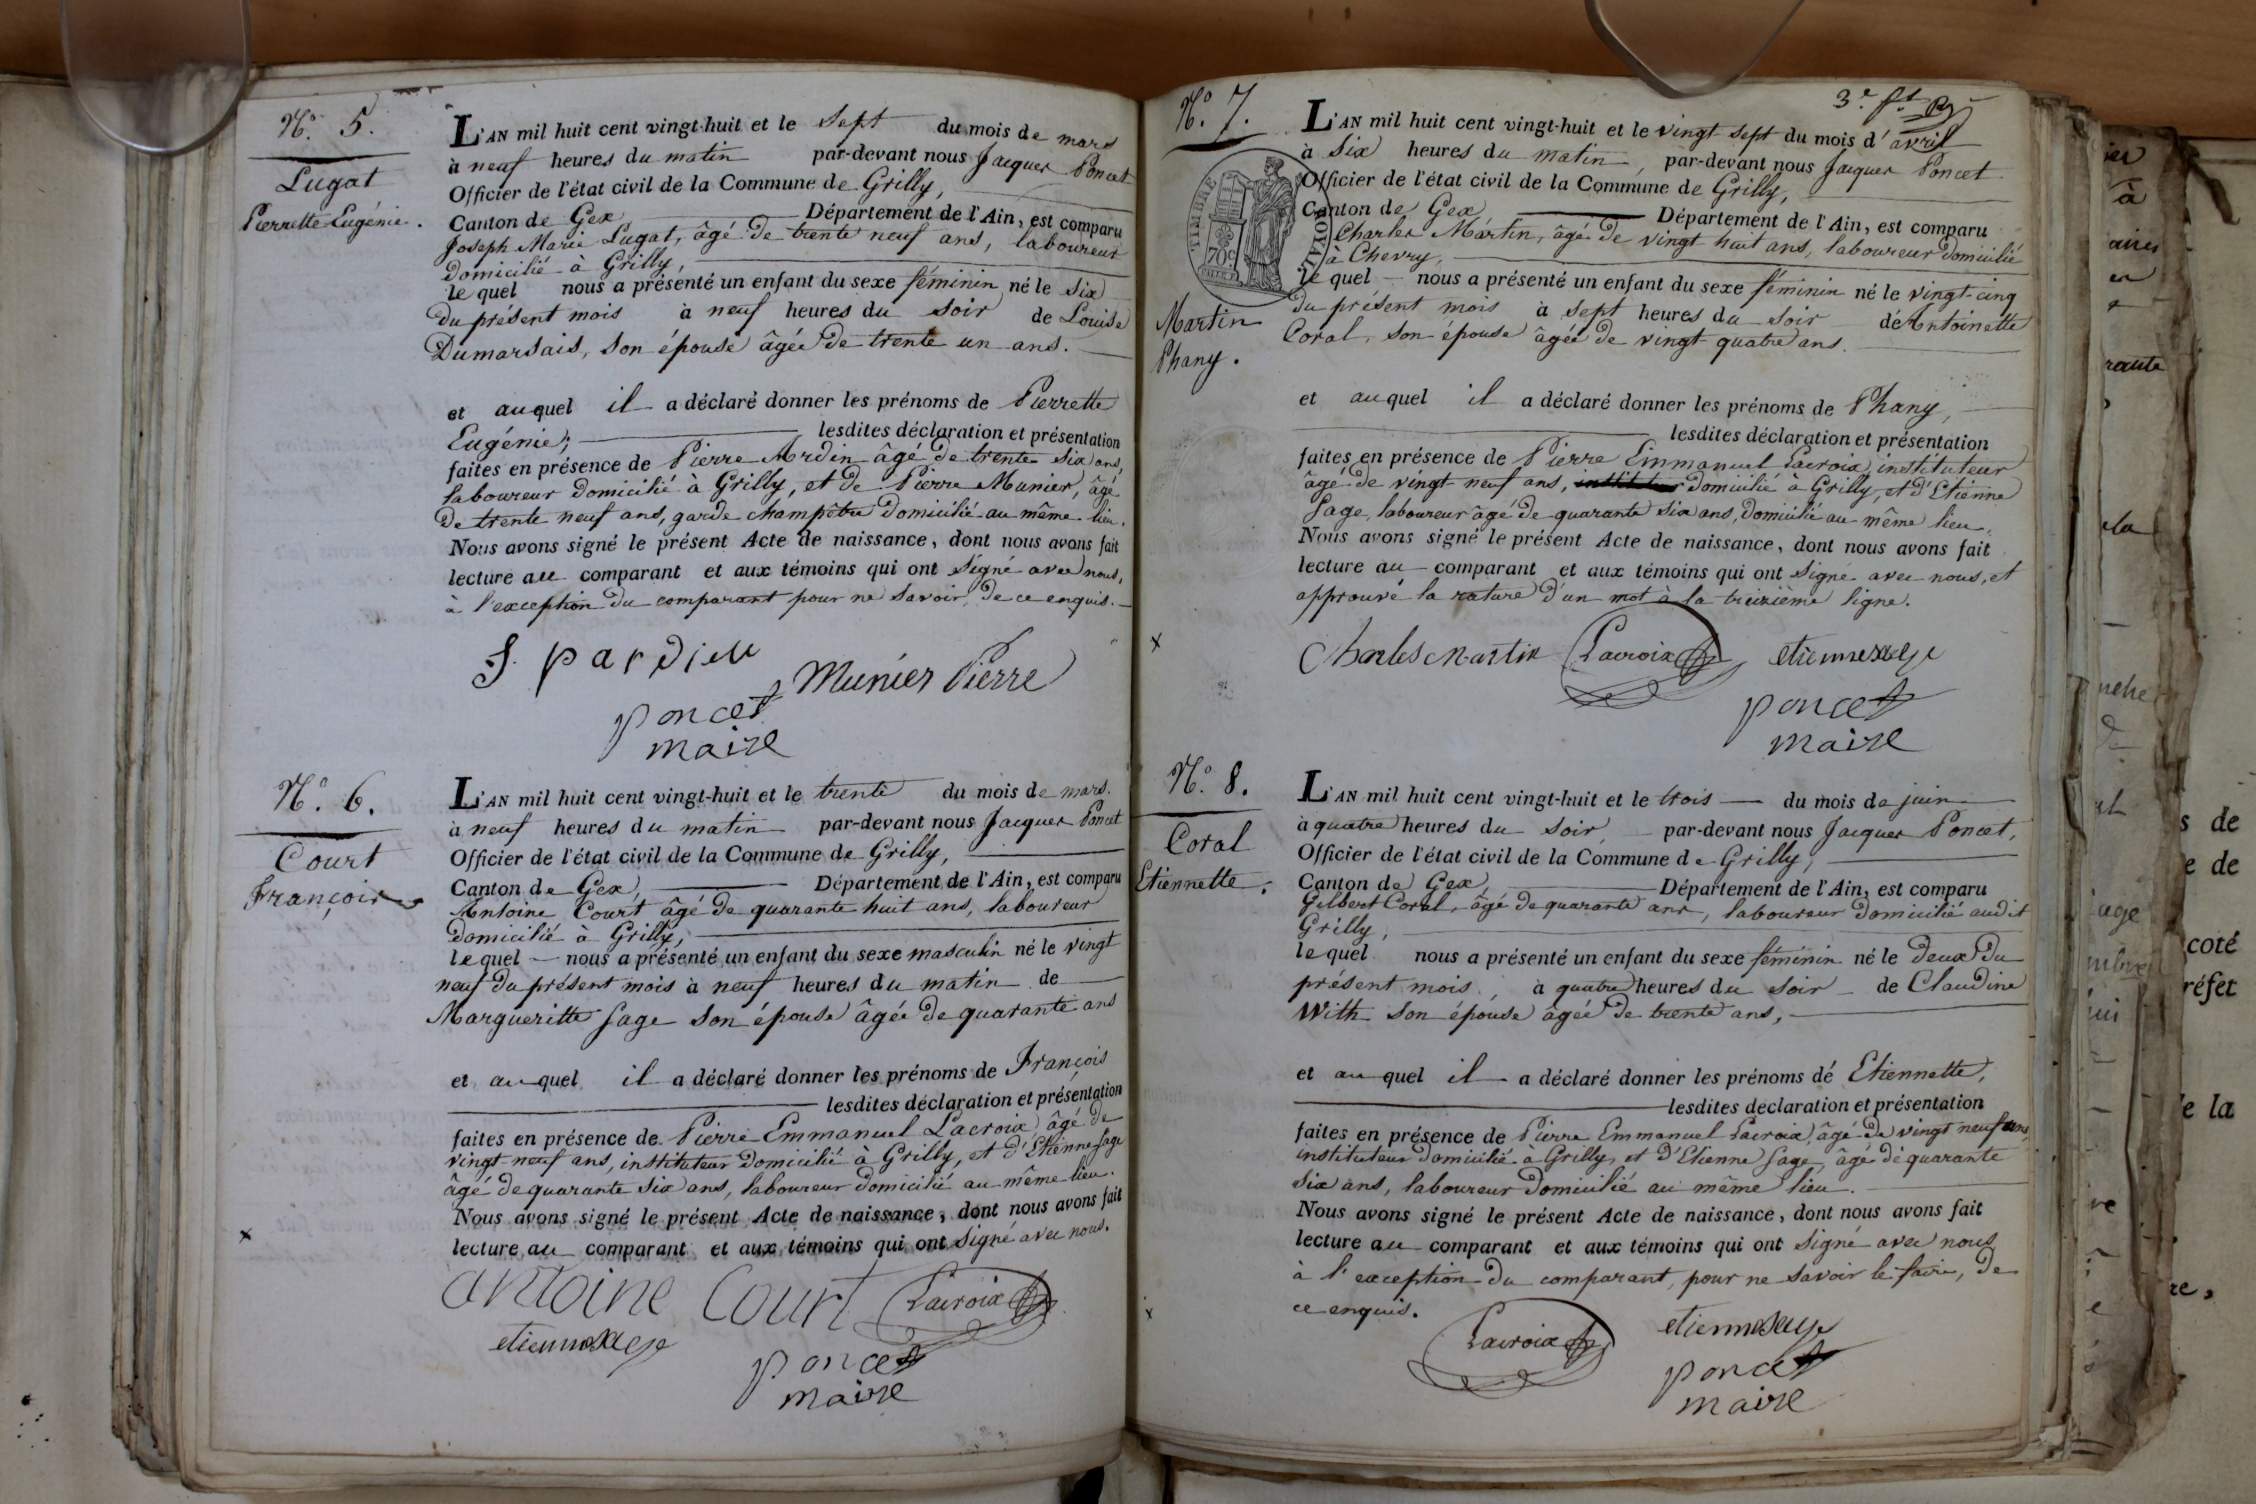 N.° 5.
Lugat
Pierrette Eugénie.
L'AN mil huit cent vingt-huit et le sept du mois de mars
à neuf heures du matin par-devant nous Jacques Poncet
Officier de l'état civil de la Commune de Grilly,
Canton de Gex, Département de l'Ain, est comparu
Joseph Marie Lugat, âgé de trente neuf ans, laboureur
domicilié à Grilly,
le quel nous a présenté un enfant du sexe féminin né le six
du présent mois à neuf heures du soir de Louise
Dumarsais, son épouse âgée de trente un ans.
et au quel il a déclaré donner les prénoms de Pierrette
Eugénie; lesdites déclaration et présentation
faites en présence de Pierre âgé de trente six ans,
laboureur domicilié à Grilly, et de Pierre Munier, âgé
de trente neuf ans, garde champêtre domicilié au même lieu.
Nous avons signé le présent Acte de naissance, dont nous avons fait
lecture au comparant et aux témoins qui ont signé avec nous,
à l'exception du comparant pour ne savoir, de ce enquis.
pardieu
Munier Pierre
poncet
maire
N.° 6.
Court
François
L'AN mil huit cent vingt-huit et le trente du mois de mars.
à neuf heures du matin par-devant nous Jacques Poncet
Officier de l'état civil de la Commune de Grilly,
Canton de Gex, Département de l'Ain, est comparu
Antoine Court âgé de quarante huit ans, laboureur
domicilié à Grilly,
le quel nous a présenté un enfant du sexe masculin né le vingt
neuf du présent mois à neuf heures du matin de
Margueritte Sage son épouse âgée de quarante ans
et au quel il a déclaré donner les prénoms de François
lesdites déclaration et présentation
faites en présence de Pierre Emmanuel Lacroix, âgé de
vingt neuf ans, instituteur domicilié à Grilly, et d'Etienne Sage
âgé de quarante six ans, laboureur domicilié au même lieu.
Nous avons signé le présent Acte de naissance, dont nous avons fait
lecture au comparant et aux témoins qui ont signé avec nous.
antoine Court Lacroix
etienne sage
poncet
maire
3.e f.t
N.° 7.
TIMBRE ROYAL
70c
Martin
Phany.
L'AN mil huit cent vingt-huit et le vingt sept du mois d'avril
à six heures du matin, par-devant nous Jacques Poncet
Officier de l'état civil de la Commune de Grilly,
Canton de Gex, Département de l'Ain, est comparu
Charles Martin, âgé de vingt huit ans, laboureur domicilié
à Chevry,
le quel nous a présenté un enfant du sexe féminin né le vingt-cinq
du présent mois à sept heures du soir de Antoinette
Coral, son épouse âgée de vingt quatre ans.
et au quel il a déclaré donner les prénoms de Phany,
lesdites déclaration et présentation
faites en présence de Pierre Emmanuel Lacroix, instituteur
âgé de vingt neuf ans, domicilié à Grilly, et d'Etienne
Sage, laboureur âgé de quarante six ans, domicilié au même lieu.
Nous avons signé le présent Acte de naissance, dont nous avons fait
lecture au comparant et aux témoins qui ont signé avec nous, et
approuvé la rature d'un mot à la treizième ligne.
Charles Martin Lacroix etienne sage
poncet
maire
N.° 8.
Coral
Etiennette.
L'AN mil huit cent vingt-huit et le trois du mois de juin
à quatre heures du soir par-devant nous Jacques Poncet,
Officier de l'état civil de la Commune de Grilly,
Canton de Gex, Département de l'Ain, est comparu
Gilbert Coral, âgé de quarante ans, laboureur domicilié audit
Grilly,
le quel nous a présenté un enfant du sexe féminin né le deux du
présent mois, à quatre heures du soir de Claudine
With son épouse âgée de trente ans,
et au quel il a déclaré donner les prénoms de Etiennette,
lesdites déclaration et présentation
faites en présence de Pierre Emmanuel Lacroix, âgé de vingt neuf ans,
instituteur domicilié à Grilly, et d'Etienne Sage, âgé de quarante
six ans, laboureur domicilié au même lieu.
Nous avons signé le présent Acte de naissance, dont nous avons fait
lecture au comparant et aux témoins qui ont signé avec nous
à l'exception du comparant, pour ne savoir le faire, de
ce enquis.
Lacroix etienne sage
poncet
maire